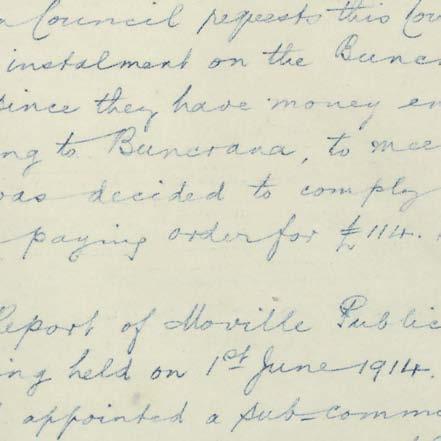 a Council requests this Cou
instalment on the Buncr
since they have money en
ng to Buncrana, to mee
was decided to comply
paying order for £114.
Report of Moville Public
ing held on 1st June 1914.
appointed a sub-comm